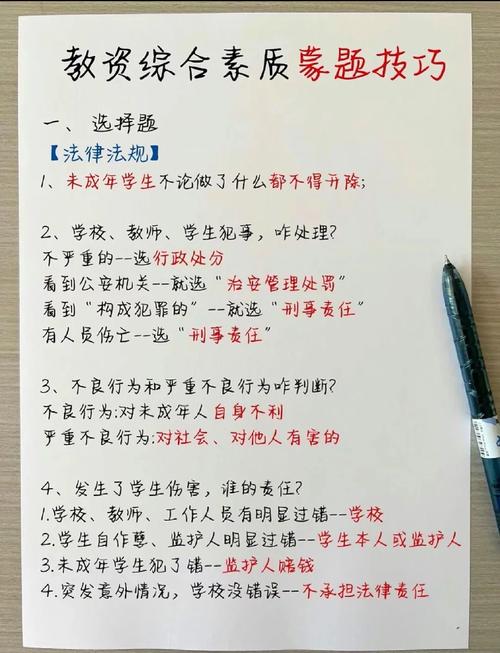 教资综合素质蒙题技巧
一、选择题
【法律法规】
1、未成年学生不论做了什么都不得开除;
2、学校、教师、学生犯事，咋处理?
不严重的--选行政处分
看到公安机关--就选“治安管理处罚”
看到“构成犯罪的”--就选“刑事责任”
有人员伤亡--选“刑事责任”
3、不良行为和严重不良行为咋判断?
不良行为:对未成年人自身不利
严重不良行为:对社会、对他人有害的
4、发生了学生伤害，谁的责任?
1.学校、教师、工作人员有明显过错--学校
2.学生自作孽、监护人明显过错--学生本人或监护人
3.未成年学生犯了错--监护人赔钱
4.突发意外情况，学校没错误--不承担法律责任